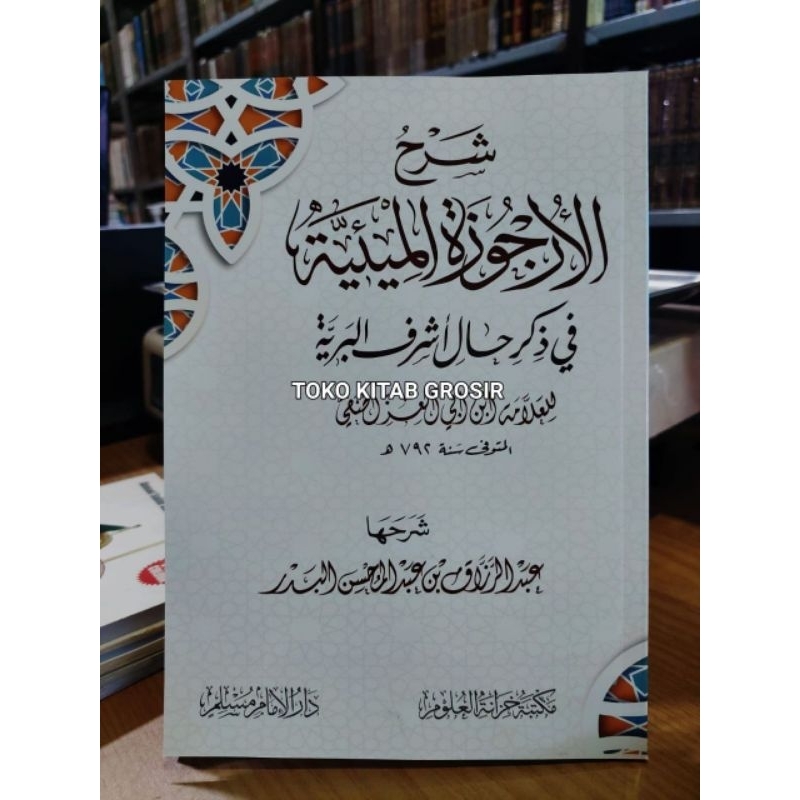 شَرْحُ
الأُرْجُوزَةِ المِيْئِيَّةِ
في ذِكْرِ حَالِ أَشْرَفِ البَرِيَّةِ
TOKO KITAB GROSIR
للعلامة ابن أبي العز الحنفي
المتوفى سنة ٧٩٢ هـ
شَرَحَهَا
عبد الرزاق بن عبد المحسن البدر
مكتبة خزانة العلوم
دار الإمام مسلم